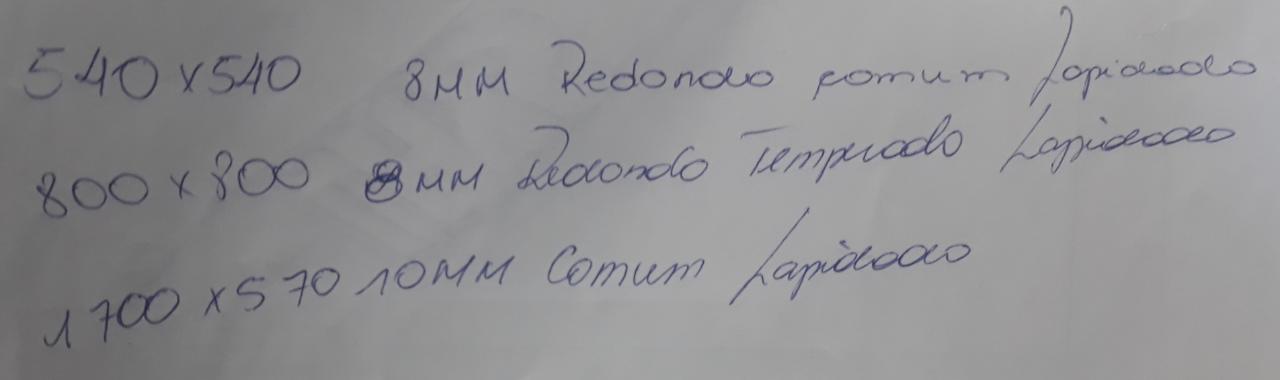 540 x 540 8MM Redondo comum Lapidado
800 x 800 8MM Redondo Temperado Lapidado
1700 x 570 10MM Comum Lapidado